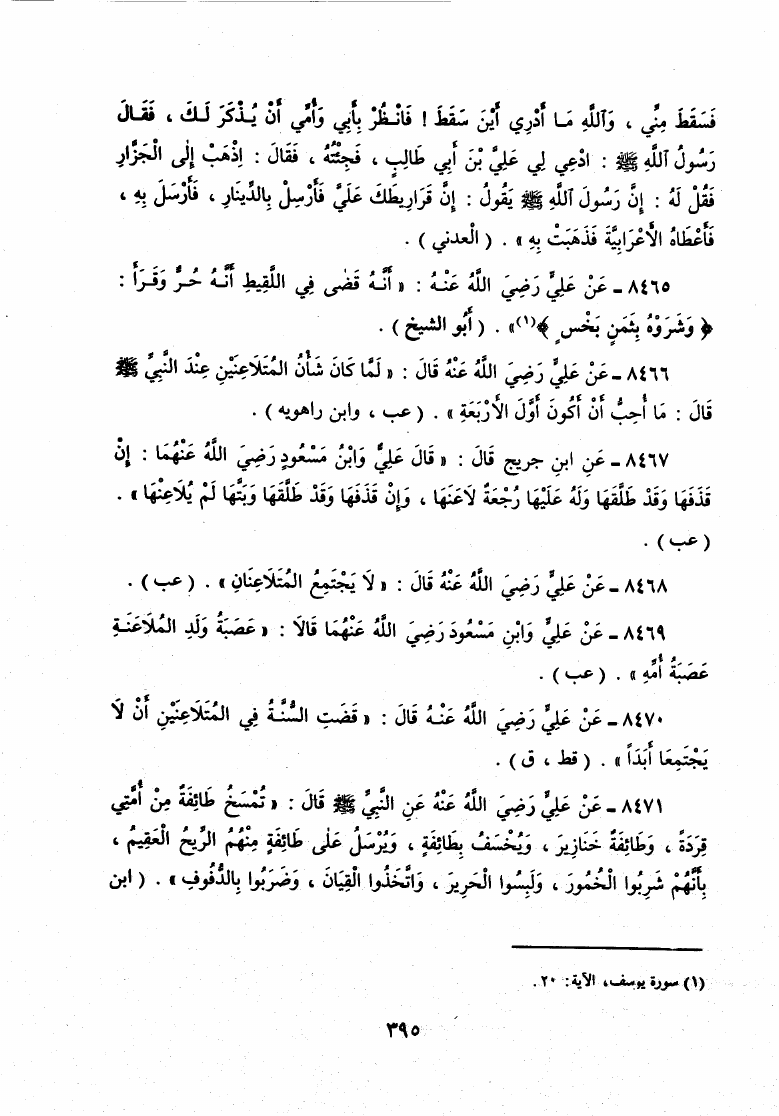 فَسَقَطَ مِنِّي ، وَٱللَّهِ مَا أَدْرِي أَيْنَ سَقَطَ ! فَانْظُرْ بِأَبِي وَأُمِّي أَنْ يُذْكَرَ لَكَ ، فَقَالَ
رَسُولُ ٱللَّهِ ﷺ : ادْعِي لِي عَلِيَّ بْنَ أَبِي طَالِبٍ ، فَجِئْتُهُ ، فَقَالَ : اِذْهَبْ إِلَى الْجَزَّارِ
فَقُلْ لَهُ : إِنَّ رَسُولَ ٱللَّهِ ﷺ يَقُولُ : إِنَّ قَرَارِيطَكَ عَلَيَّ فَأَرْسِلْ بِالدِّينَارِ ، فَأَرْسَلَ بِهِ ،
فَأَعْطَاهُ الأَعْرَابِيَّةَ فَذَهَبَتْ بِهِ » . ( العدني ) .
٨٤٦٥ - عَنْ عَلِيٍّ رَضِيَ اللَّهُ عَنْهُ : « أَنَّهُ قَضَى فِي اللَّقِيطِ أَنَّهُ حُرٌّ وَقَرَأَ :
﴿ وَشَرَوْهُ بِثَمَنٍ بَخْسٍ ﴾(١)» . ( أبو الشيخ ) .
٨٤٦٦ - عَنْ عَلِيٍّ رَضِيَ اللَّهُ عَنْهُ قَالَ : « لَمَّا كَانَ شَأْنُ المُتَلَاعِنَيْنِ عِنْدَ النَّبِيِّ ﷺ
قَالَ : مَا أُحِبُّ أَنْ أَكُونَ أَوَّلَ الأَرْبَعَةِ » . ( عب ، وابن راهويه ) .
٨٤٦٧ - عَنِ ابنِ جريج قَالَ : « قَالَ عَلِيٌّ وَابْنُ مَسْعُودٍ رَضِيَ اللَّهُ عَنْهُمَا : إِنْ
قَذَفَهَا وَقَدْ طَلَّقَهَا وَلَهُ عَلَيْهَا رُجْعَةٌ لَاعَنَهَا ، وَإِنْ قَذَفَهَا وَقَدْ طَلَّقَهَا وَبَتَّهَا لَمْ يُلَاعِنْهَا » .
( عب ) .
٨٤٦٨ - عَنْ عَلِيٍّ رَضِيَ اللَّهُ عَنْهُ قَالَ : « لَا يَجْتَمِعُ المُتَلَاعِنَانِ » . ( عب ) .
٨٤٦٩ - عَنْ عَلِيٍّ وَابْنِ مَسْعُودَ رَضِيَ اللَّهُ عَنْهُمَا قَالَا : « عَصَبَةُ وَلَدِ المُلَاعَنَةِ
عَصَبَةُ أُمِّهِ » . ( عب ) .
٨٤٧٠ - عَنْ عَلِيٍّ رَضِيَ اللَّهُ عَنْهُ قَالَ : « قَضَتِ السُّنَّةُ فِي المُتَلَاعِنَيْنِ أَنْ لَا
يَجْتَمِعَا أَبَداً » . ( قط ، ق ) .
٨٤٧١ - عَنْ عَلِيٍّ رَضِيَ اللَّهُ عَنْهُ عَنِ النَّبِيِّ ﷺ قَالَ : « تُمْسَخُ طَائِفَةٌ مِنْ أُمَّتِي
قِرَدَةً ، وَطَائِفَةٌ خَنَازِيرَ ، وَيُخْسَفُ بِطَائِفَةٍ ، وَيُرْسَلُ عَلَى طَائِفَةٍ مِنْهُمُ الرِّيحُ الْعَقِيمُ ،
بِأَنَّهُمْ شَرِبُوا الْخُمُورَ ، وَلَبِسُوا الْحَرِيرَ ، وَاتَّخَذُوا الْقِيَانَ ، وَضَرَبُوا بِالدُّفُوفِ » . ( ابن
(١) سورة يوسف، الآية: ٢٠ .
٣٩٥